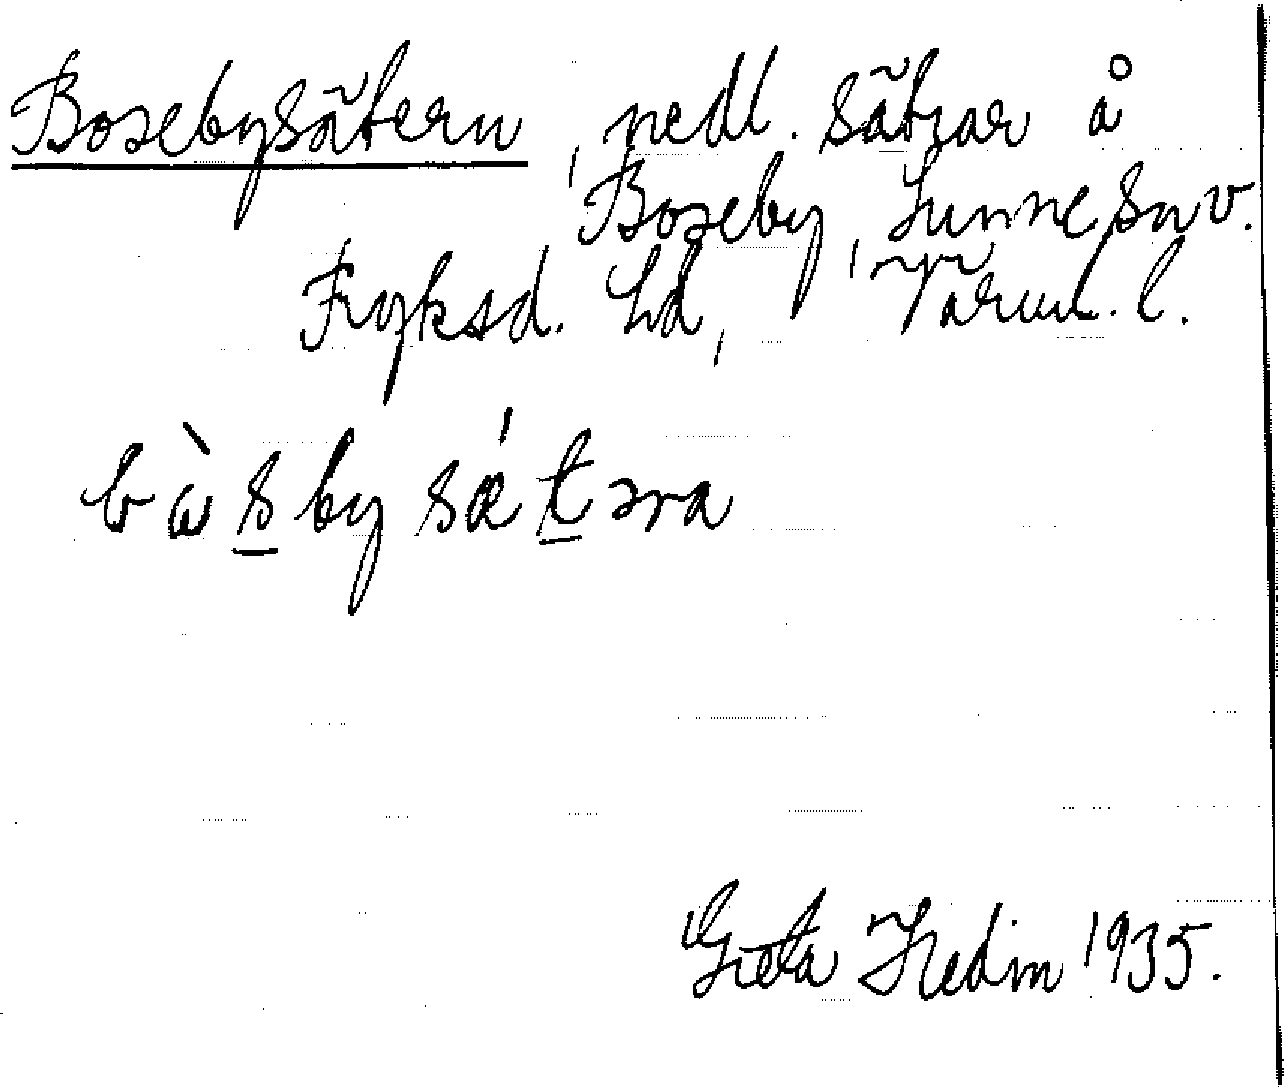 Bosebysätern, nedl. sätrar å
Boseby, Sunne sn v.
Fryksd. hd, Värml. l.
bɷ̀s̲by sǽt̲əra
Greta Hedin 1935.